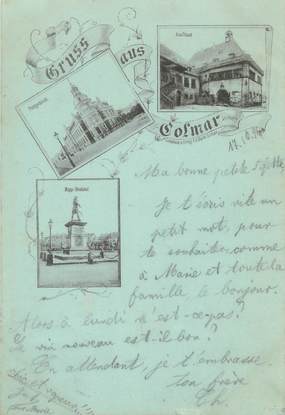 Gruss
aus
Kaufhaus
Colmar
Rapp-Denkmal
Ma bonne petite
Je t'écris vite un
petit mot, pour
te souhaiter comme
à Marie et toute la
famille, le bonjour.
Alors à lundi n'est-ce-pas?
Le vin nouveau est-il bon?
En attendant, je t'embrasse
ton frère
Ch.